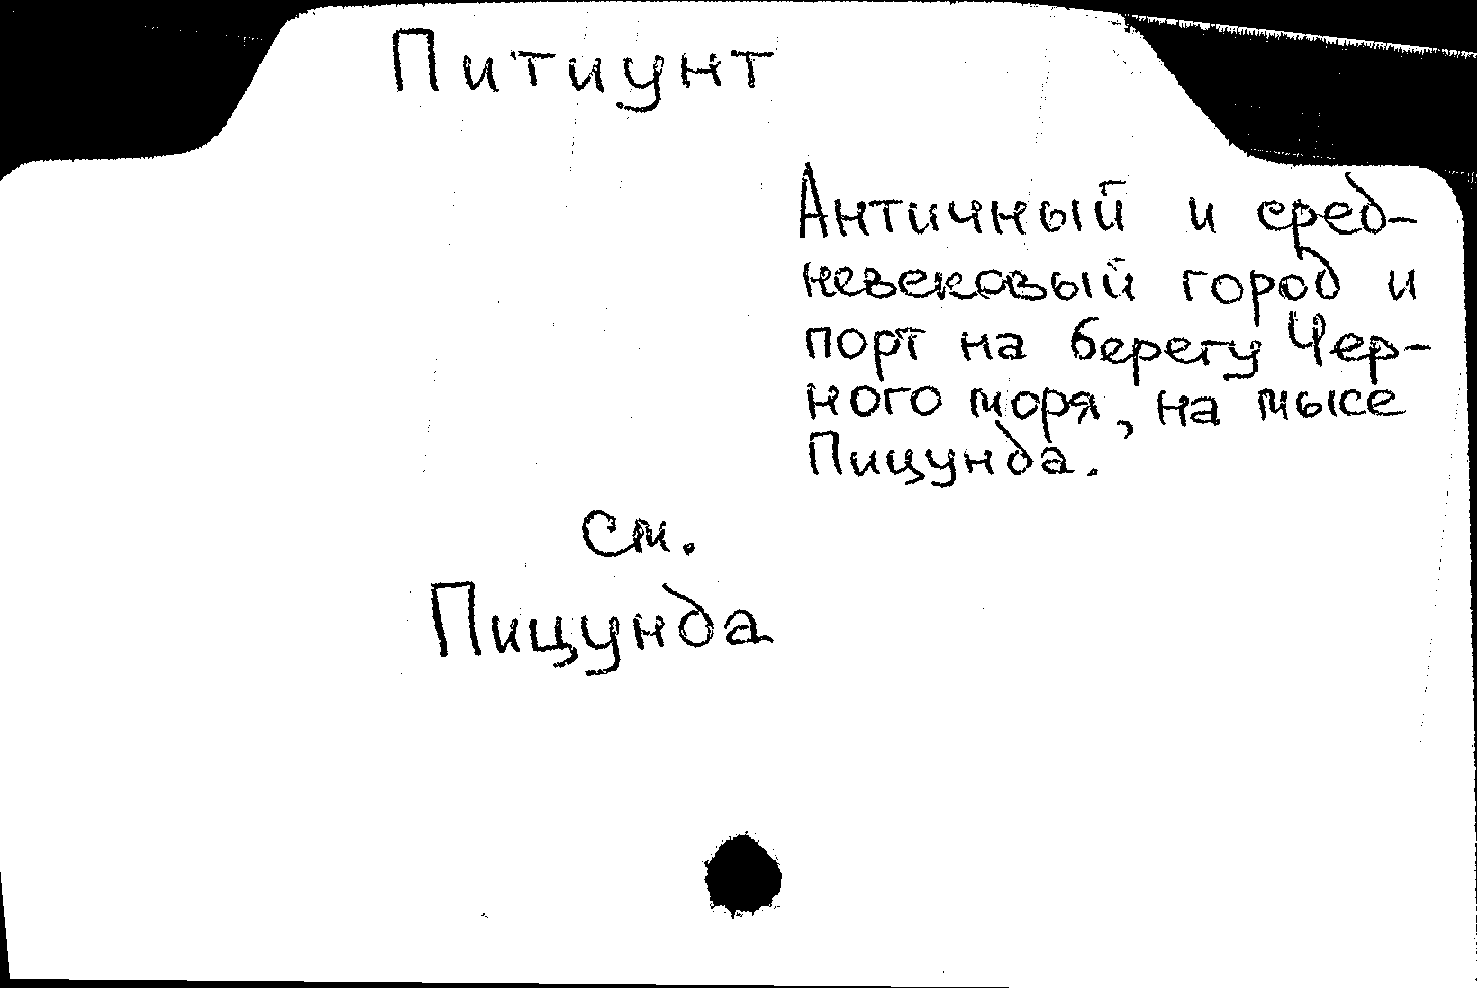 Питиунт
Античный и сред-
невековый город и
порт на берегу Чер-
ного моря, на мысе
Пицунда.
см.
Пицунда